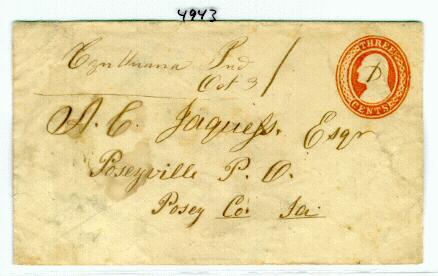 4943
Cynthiana Ind
Oct 3
THREE
D
CENTS
A. C. Jaquess. Esqr
Poseyville P. O.
Posey Co. Ia.